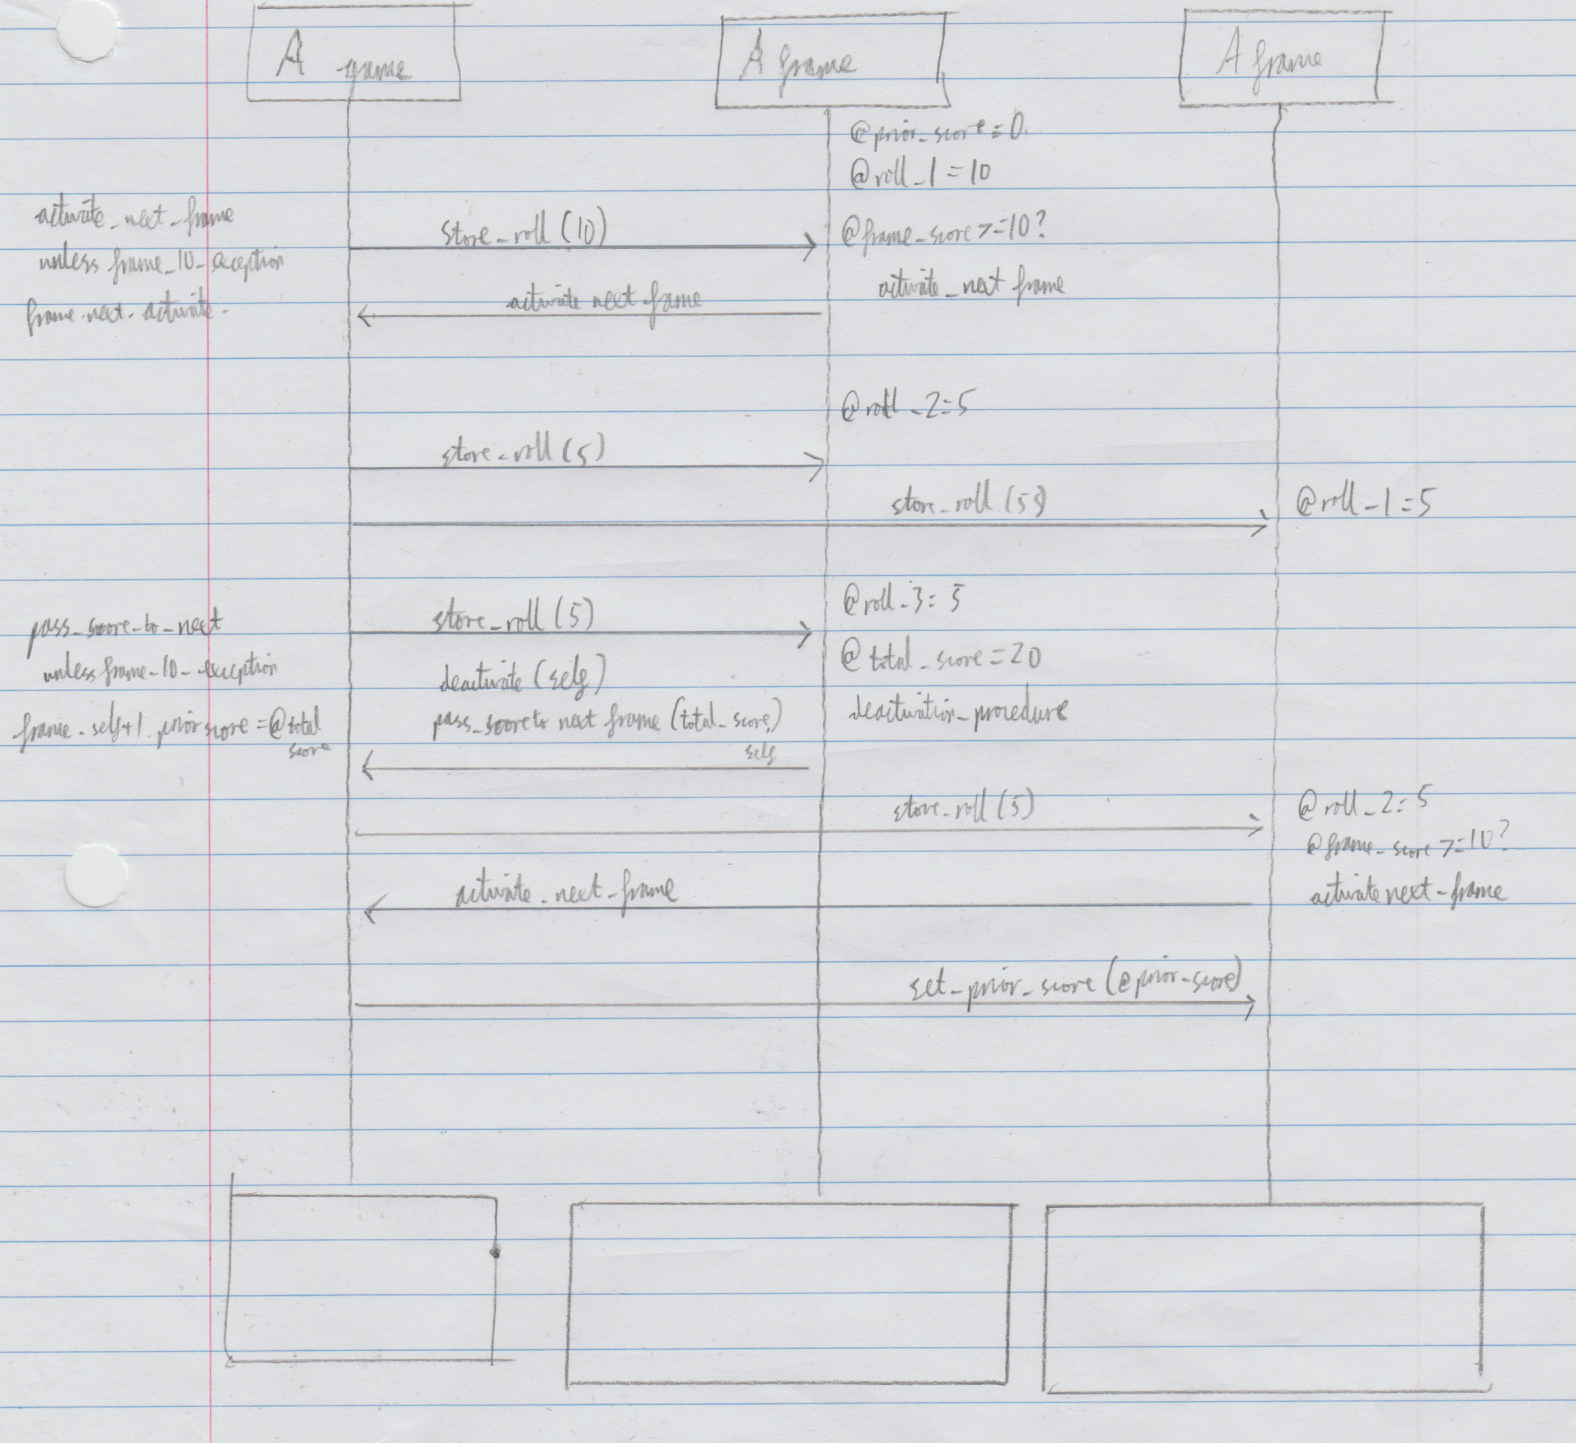 A game
A frame
A frame
@prior_score = 0
@roll_1 = 10
activate_next_frame
unless frame_10_exception
frame.next.activate.
store_roll (10)
@frame_score >= 10?
activate_next frame
activate next frame
@roll_2 = 5
store_roll (5)
store_roll (5)
@roll_1 = 5
pass_score_to_next
unless frame_10_exception
frame.self+1.prior score = @total
score
store_roll (5)
@roll_3 = 5
deactivate (self)
@total_score = 20
pass_score to next frame (total_score,)
self
deactivation_procedure
store_roll (5)
@roll_2 = 5
@frame_score >= 10?
activate_next_frame
activate next_frame
set_prior_score (@prior_score)